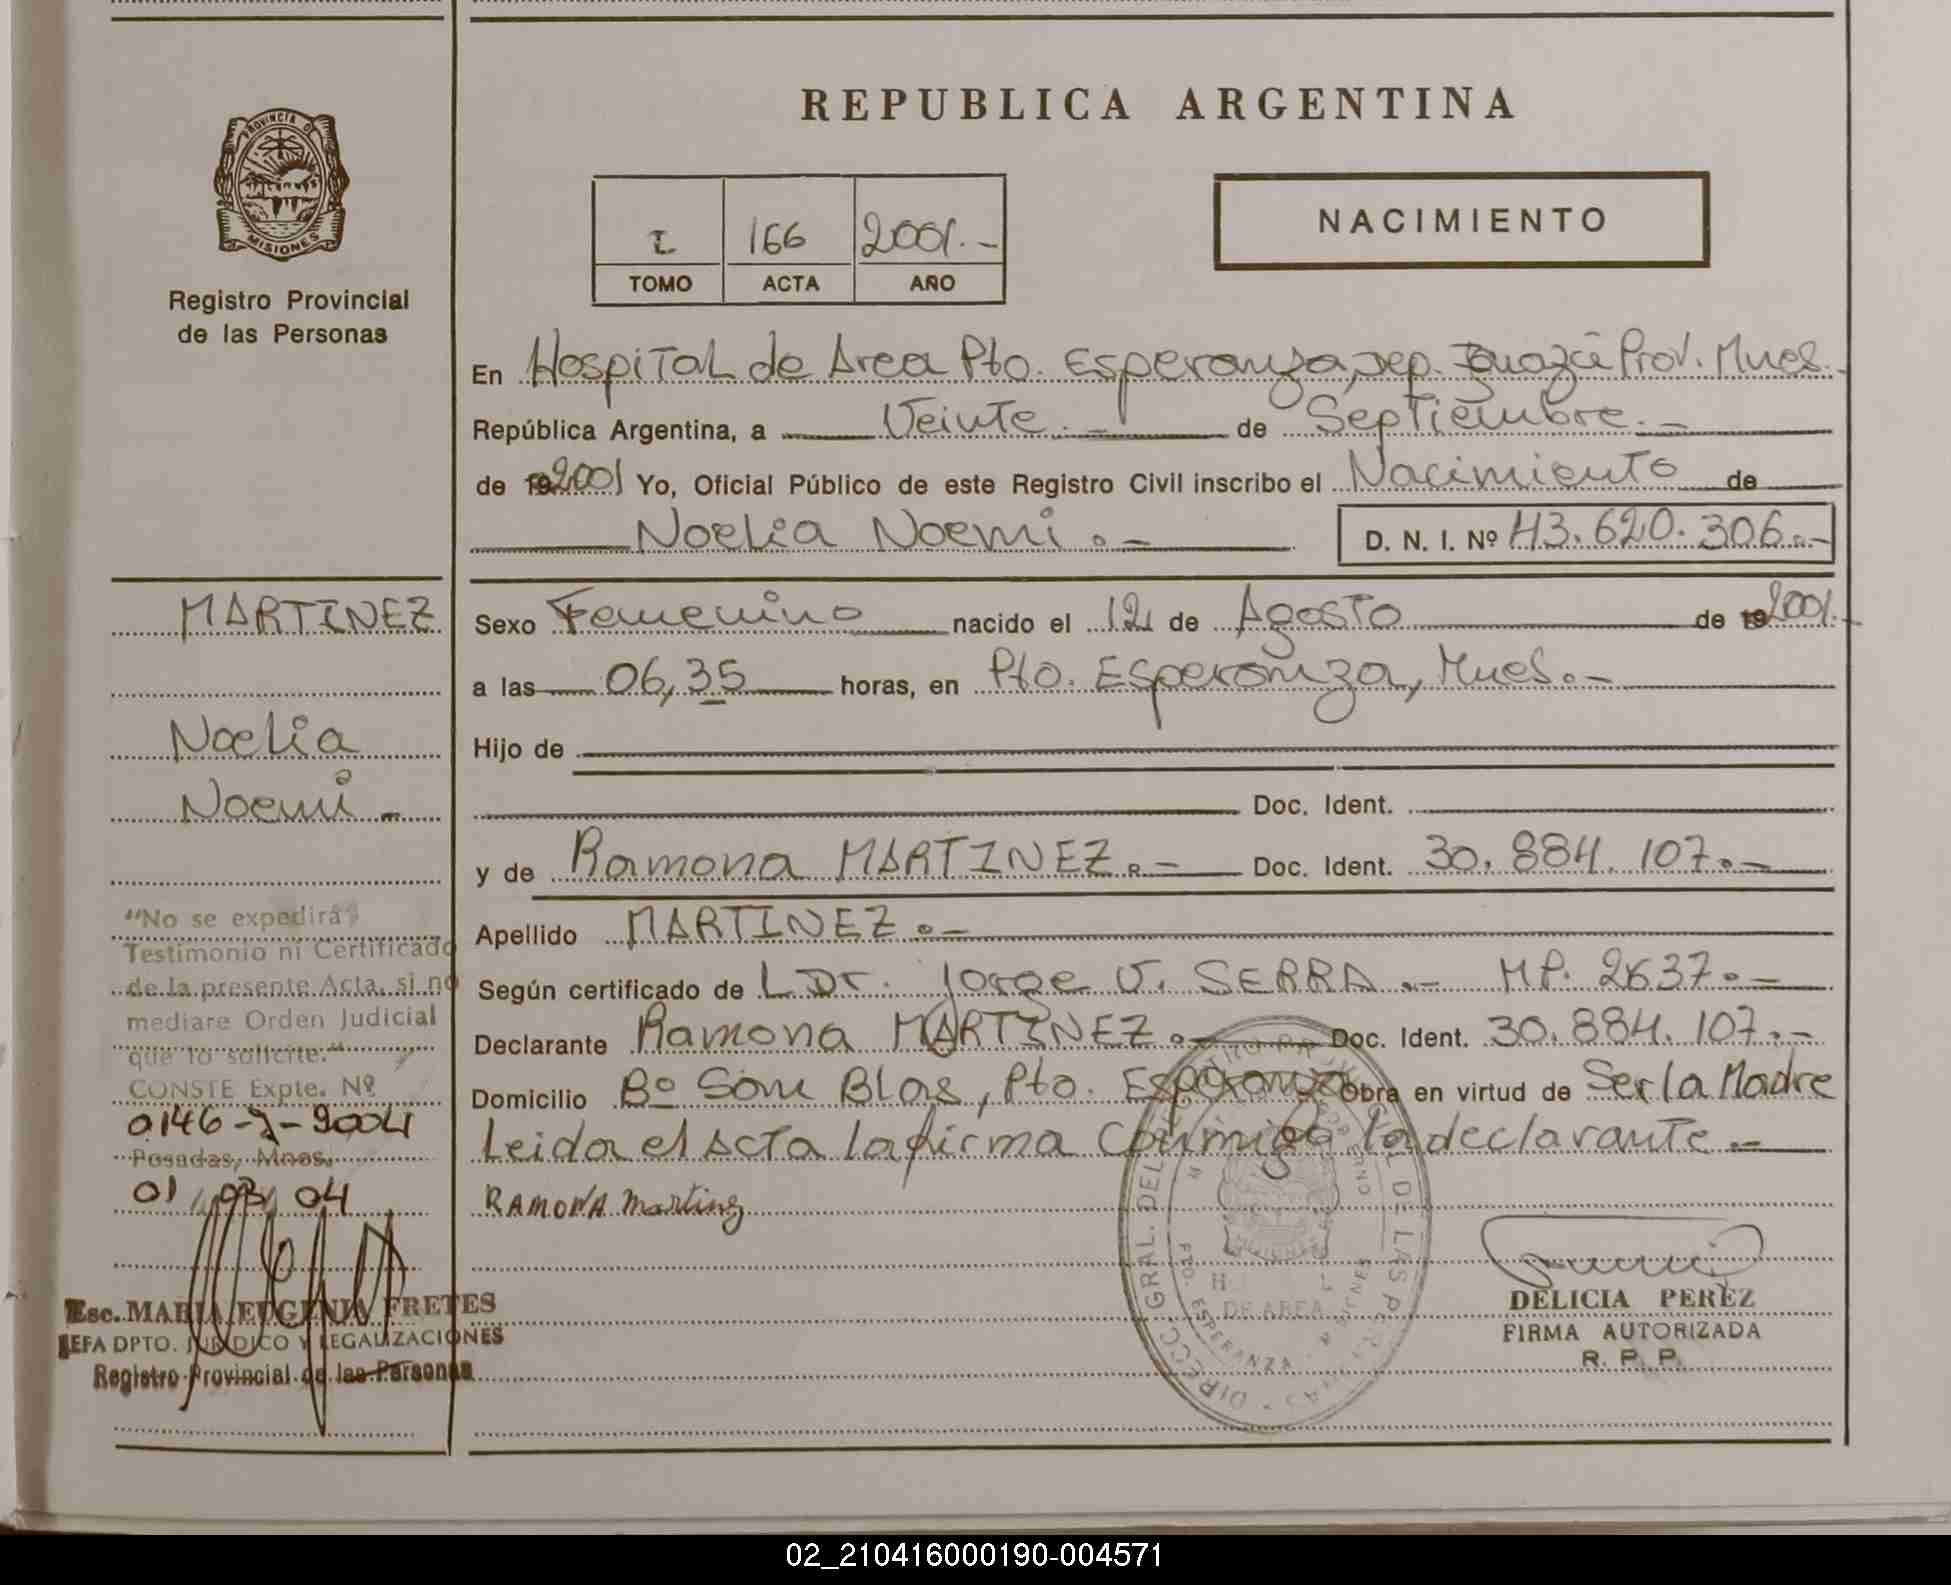 REPUBLICA ARGENTINA
PROVINCIA DE
MISIONES
Registro Provincial
de las Personas
I 166 2001.-
TOMO ACTA AÑO
NACIMIENTO
En Hospital de Area Pto. Esperanza, Dep. Iguazú Prov. Mnes.
República Argentina, a Veinte.- de Septiembre.-
de 192001 Yo, Oficial Público de este Registro Civil inscribo el Nacimiento de
Noelia Noemi.-
D. N. I. Nº 43.620.306.-
MARTINEZ
Noelia
Noemi -
Sexo Femenino nacido el 12 de Agosto de 192001.-
a las 06,35 horas, en Pto. Esperanza, Mnes.-
Hijo de
Doc. Ident.
y de Ramona MARTINEZ.- Doc. Ident. 30.884.107.-
Apellido MARTINEZ.-
Según certificado de L Dr. Jorge V. SERRA.- MP. 2637.-
Declarante Ramona MARTINEZ.- Doc. Ident. 30.884.107.-
Domicilio Bº San Blas, Pto. Esperanza Obra en virtud de Ser la Madre
Leida el Acta la firma Conmigo la declarante.-
RAMONA Martinez
"No se expedirá
Testimonio ni Certificado
de la presente Acta, si no
mediare Orden Judicial
que lo solicite."
CONSTE Expte. Nº
0146-J-2004
Posadas, Mnes.
01 / 03 / 04
Esc. MARIA EUGENIA FRETES
JEFA DPTO. JURIDICO Y LEGALIZACIONES
Registro Provincial de las Personas
DIRECC. GRAL. DEL REGISTRO PROVINCIAL DE LAS PERSONAS
PTO. ESPERANZA - MISIONES
DE AREA
DELICIA PEREZ
FIRMA AUTORIZADA
R. P. P.
02_210416000190-004571